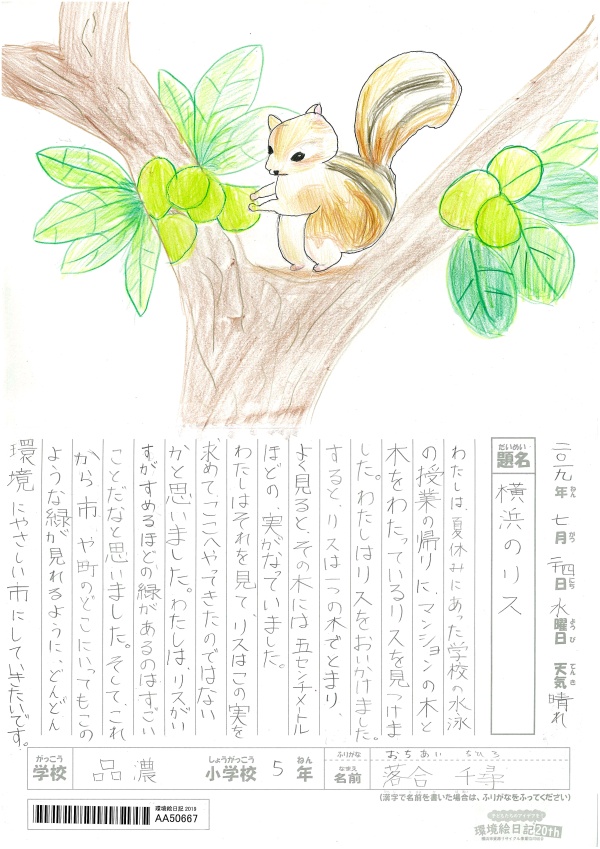 二〇一九年 七月 二十四日 水曜日 天気 晴れ
ねん がつ にち ようび てんき
だいめい
題名
横浜のリス
わたしは、夏休みにあった学校の水泳
の授業の帰りに、マンションの木と
木をわたっているリスを見つけま
した。わたしはリスをおいかけました。
すると、リスは一つの木でとまり、
よく見ると、その木には五センチメートル
ほどの、実がなっていました。
わたしはそれを見て、リスはこの実を
求めて、ここへやってきたのではない
かと思いました。わたしは、リスがい
すがすめるほどの緑があるのはすごい
ことだなと思いました。そして、これ
から市や町のどこにいってもこの
ような緑が見れるように、どんどん
環境にやさしい市にしていきたいです。
がっこう しょうがっこう ねん ふりがな おちあい ちひろ
学校 品濃 小学校 5年 なまえ 名前 落合 千尋
(漢字で名前を書いた場合は、ふりがなをふってください)
環境絵日記 2019
AA50667
環境絵日記20th